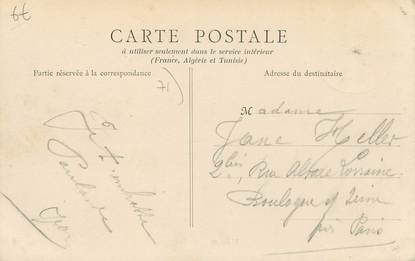 6€
CARTE POSTALE
à utiliser seulement dans le service intérieur
(France, Algérie et Tunisie)
Partie réservée à la correspondance
Adresse du destinataire
71
Madame
Jane Heller
2 bis, Rue Alsace Lorraine
Boulogne s/ Seine
près Paris